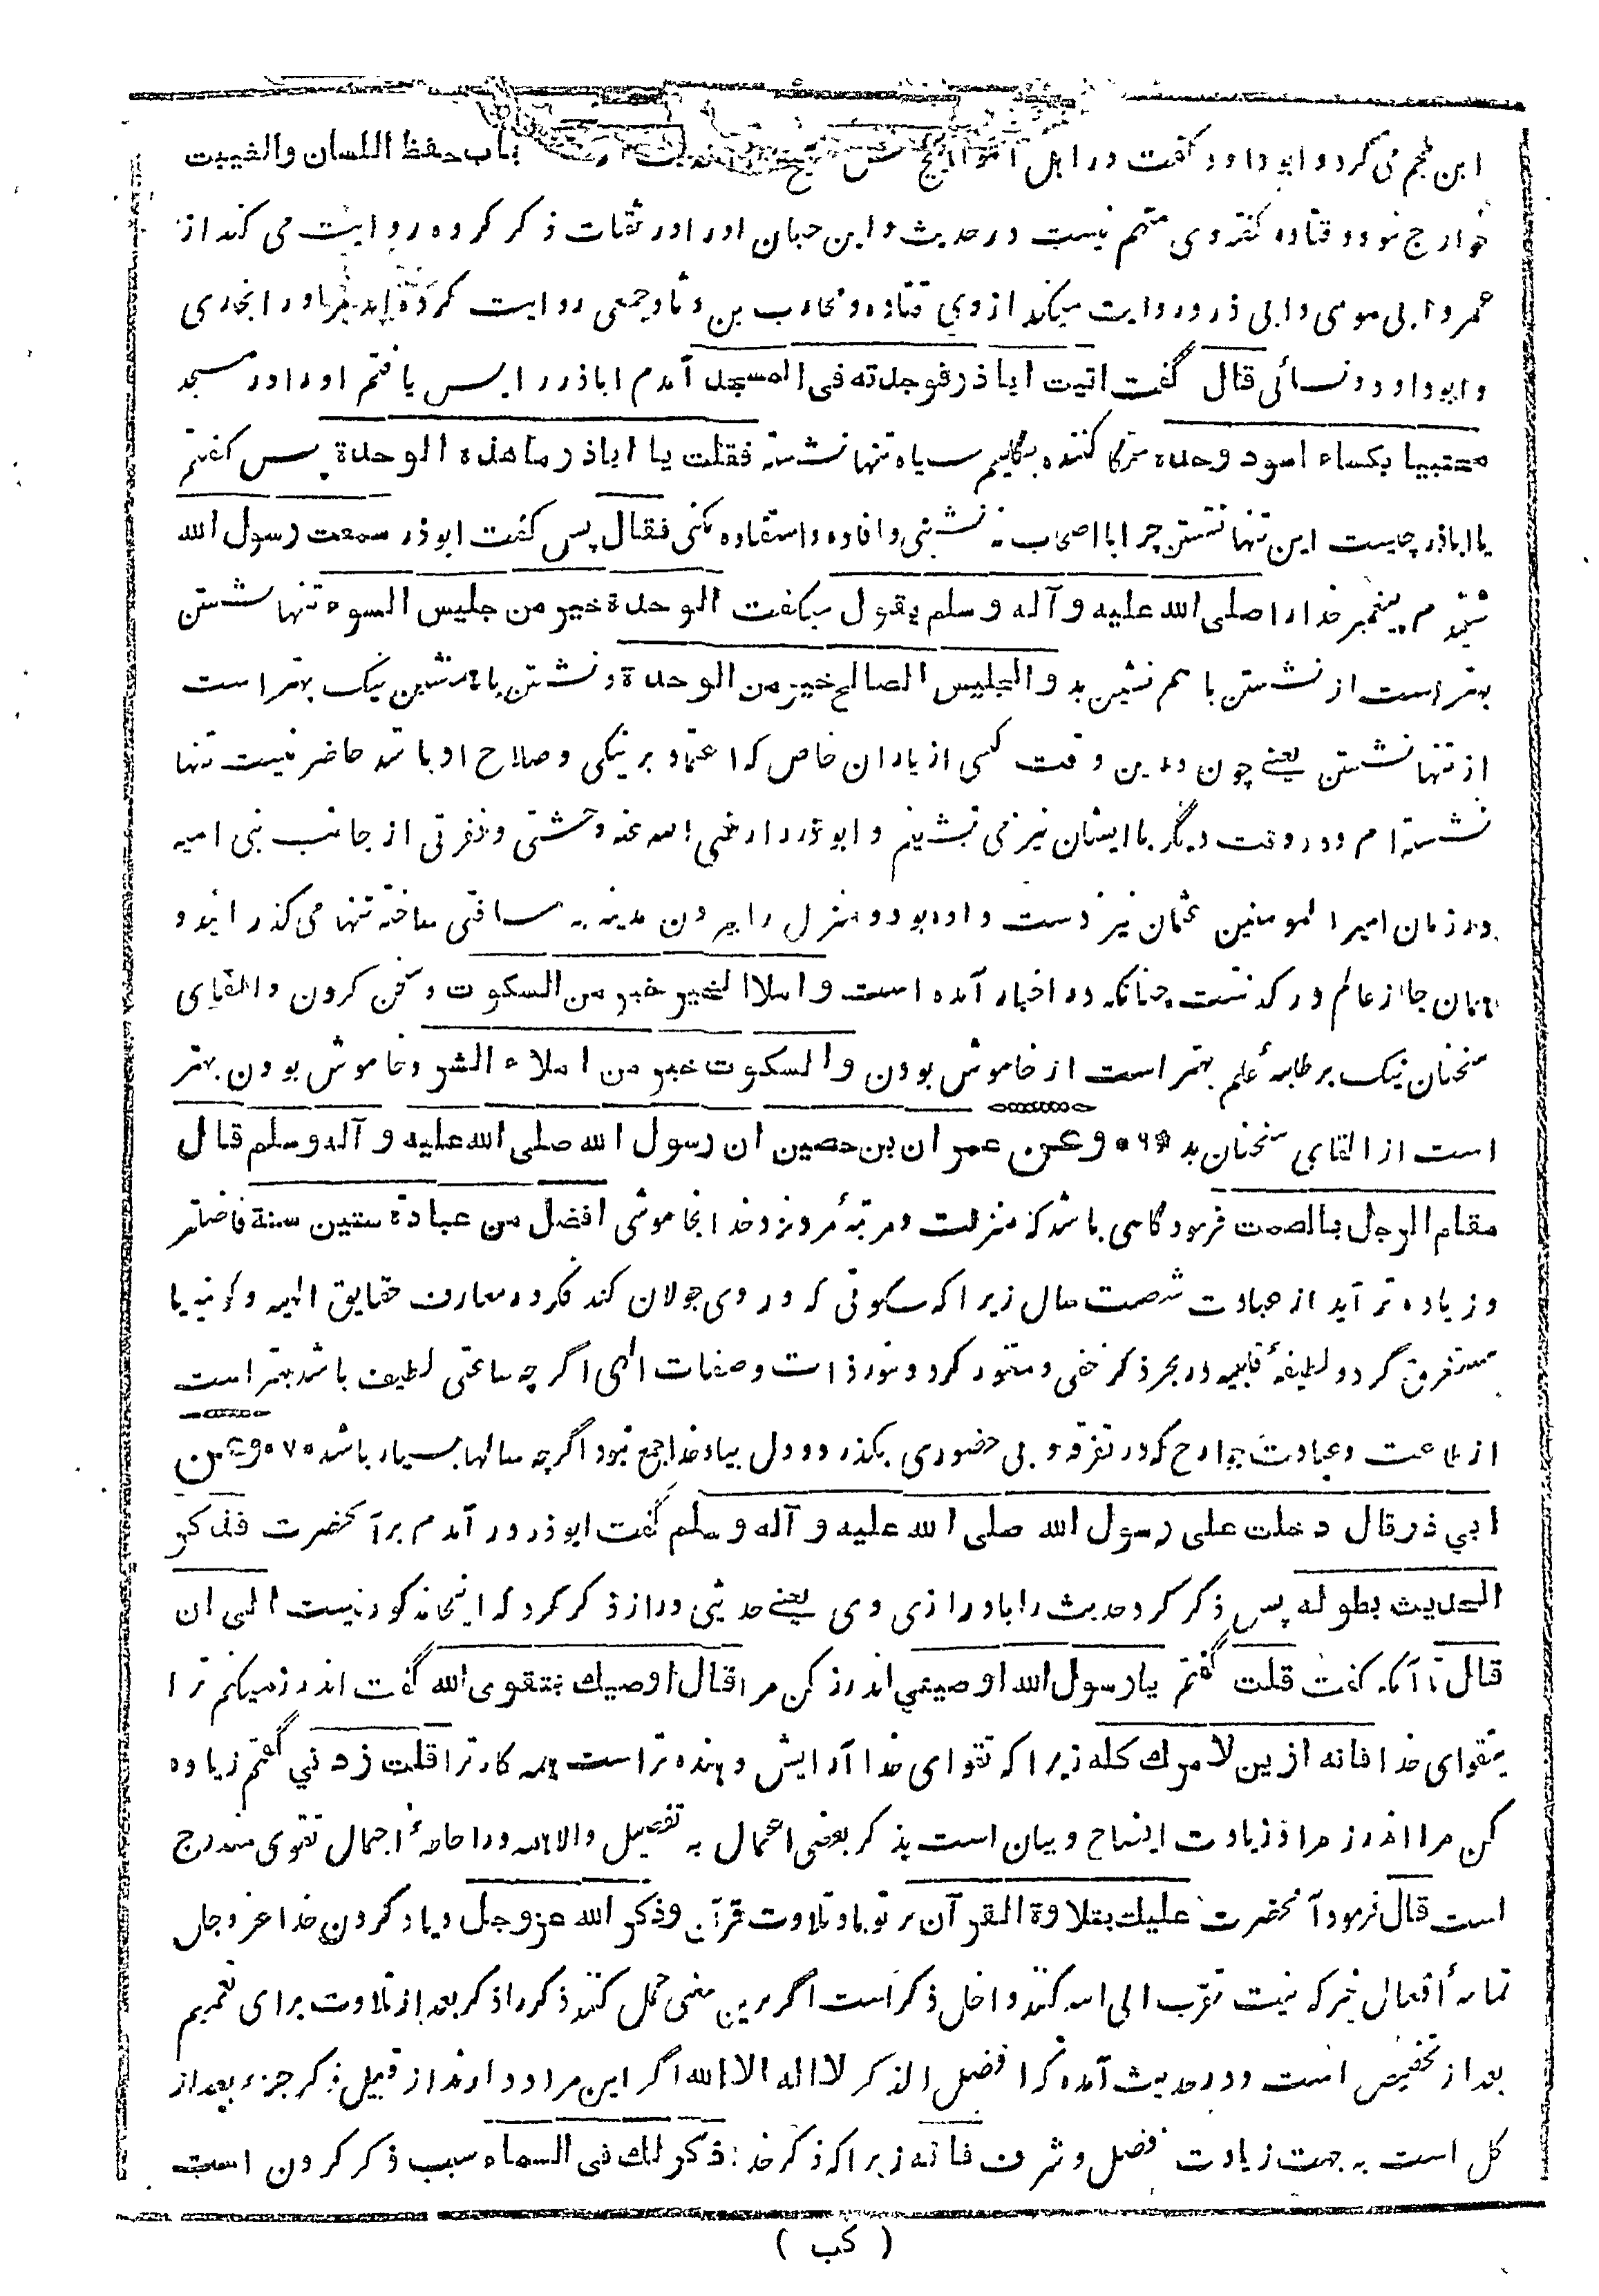 ابن ملجم می کرد و ابو داود گفت در اهل اهوا باب حفظ اللسان والغیبت
خوارج نبود و قتاده گفته وی متهم نیست در حدیث و ابن حبان او را در ثقات ذکر کرده روایت می کند از
عمر و ابی موسی و ابی ذر و روایت میکند از وی قتاده و محارب بن دثار و جمعی روایت کرده اند مر او را بخاری
و ابو داود و نسائی قال گفت اتیت اباذر فوجدته فی المسجد آمدم اباذر را پس یافتم او را در مسجد
محتبیا بکساء اسود وحده حبوه کننده بگلیم سیاه تنها نشسته فقلت یا اباذر ما هذه الوحدة پس گفتم
یا اباذر چیست این تنها نشستن چرا با اصحاب نه نشینی و افاده و استفاده نکنی فقال پس گفت ابوذر سمعت رسول الله
شنیدم پیغمبر خدا را صلی الله علیه و آله و سلم یقول میگفت الوحدة خیر من جلیس السوء تنها نشستن
بهتر است از نشستن با هم نشین بد والجلیس الصالح خیر من الوحدة و نشستن با همنشین نیک بهتر است
از تنها نشستن یعنے چون درین وقت کسی از یاران خاص که اعتماد بر نیکی و صلاح او باشد حاضر نیست تنها
نشسته ام و در وقت دیگر با ایشان نیز می نشینم و ابوذر را رضی الله عنه وحشتی و نفرتی از جانب بنی امیه
در زمان امیر المومنین عثمان نیز دست داده بود و منزل را بیرون مدینه به مسافتی ساخته تنها می گذرانید و
همان جا از عالم در گذشت چنانکه در اخبار آمده است و املاء الخیر خیر من السکوت و سخن کردن و القای
سخنان نیک بر طلبهٔ علم بهتر است از خاموش بودن والسکوت خیر من املاء الشر و خاموش بودن بهتر
است از القای سخنان بد *۶* وعن عمران بن حصین ان رسول الله صلی الله علیه و آله و سلم قال
مقام الرجل بالصمت فرمود گاهی باشد که منزلت و مرتبهٔ مرد نزد خدا بخاموشی افضل من عبادة ستین سنة فاضلتر
و زیاده تر آید از عبادت شصت سال زیرا که سکوتی که در وی جولان کند فکر در معارف حقایق الهیه و کونیه یا
مستغرق گردد لطیفهٔ قلبیه در بحر ذکر خفی و متنور گردد بنور ذات و صفات الهی اگر چه ساعتی لطیف باشد بهتر است
از طاعت و عبادت جوارح که در تفرقه و بی حضوری بگذرد و دل بیاد خدا جمع نبود اگر چه سالها بسیار باشد *۷* وعن
ابي ذر قال دخلت علی رسول الله صلی الله علیه و آله و سلم گفت ابوذر در آمدم بر آنحضرت فذکر
الحدیث بطوله پس ذکر کرد حدیث را با درازی وی یعنے حدیثی دراز ذکر کرد که اینجا مذکور نیست الی ان
قال تا آنکه گفت قلت گفتم یا رسول الله اوصیني اندرز کن مرا قال اوصیك بتقوی الله گفت اندرز میکنم ترا
بتقوای خدا فانه ازین لامرك کله زیرا که تقوای خدا آرایش دهنده تر است همه کار ترا قلت زدني گفتم زیاده
کن مرا اندرز مراد زیادت ایضاح و بیان است بذکر بعضی اعمال به تفصیل والا همه در احاطهٔ اجمال تقوی مندرج
است قال فرمود آنحضرت علیك بتلاوة القرآن بر تو باد تلاوت قرآن وذکر الله عز و جل و یاد کردن خدا عز و جل
تمامهٔ افعال خیر که نیت تقرب الی الله کنند داخل ذکر است اگر برین معنی حمل کنند ذکر را ذکر بعد از تلاوت برای تعمیم
بعد از تخصیص است و در حدیث آمده که افضل الذکر لا اله الا الله اگر این مراد دارند از قبیل ذکر جزء بعد از
کل است به جهت زیادت فضل و شرف فانه زیرا که ذکر خدا ذکر لك فی السماء سبب ذکر کردن است
( کب )